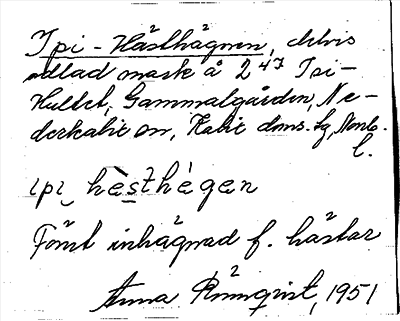 Ipi-Hästhägnen, delvis
odlad mark å 2 47 Ipi-
Hultet, Gammalgården, Ne-
derkalix sn, Kalix doms. lg, Norrb.
l.
ipi hèsthègen
Förut inhägnad f. hästar
Anna Rönnqvist, 1951